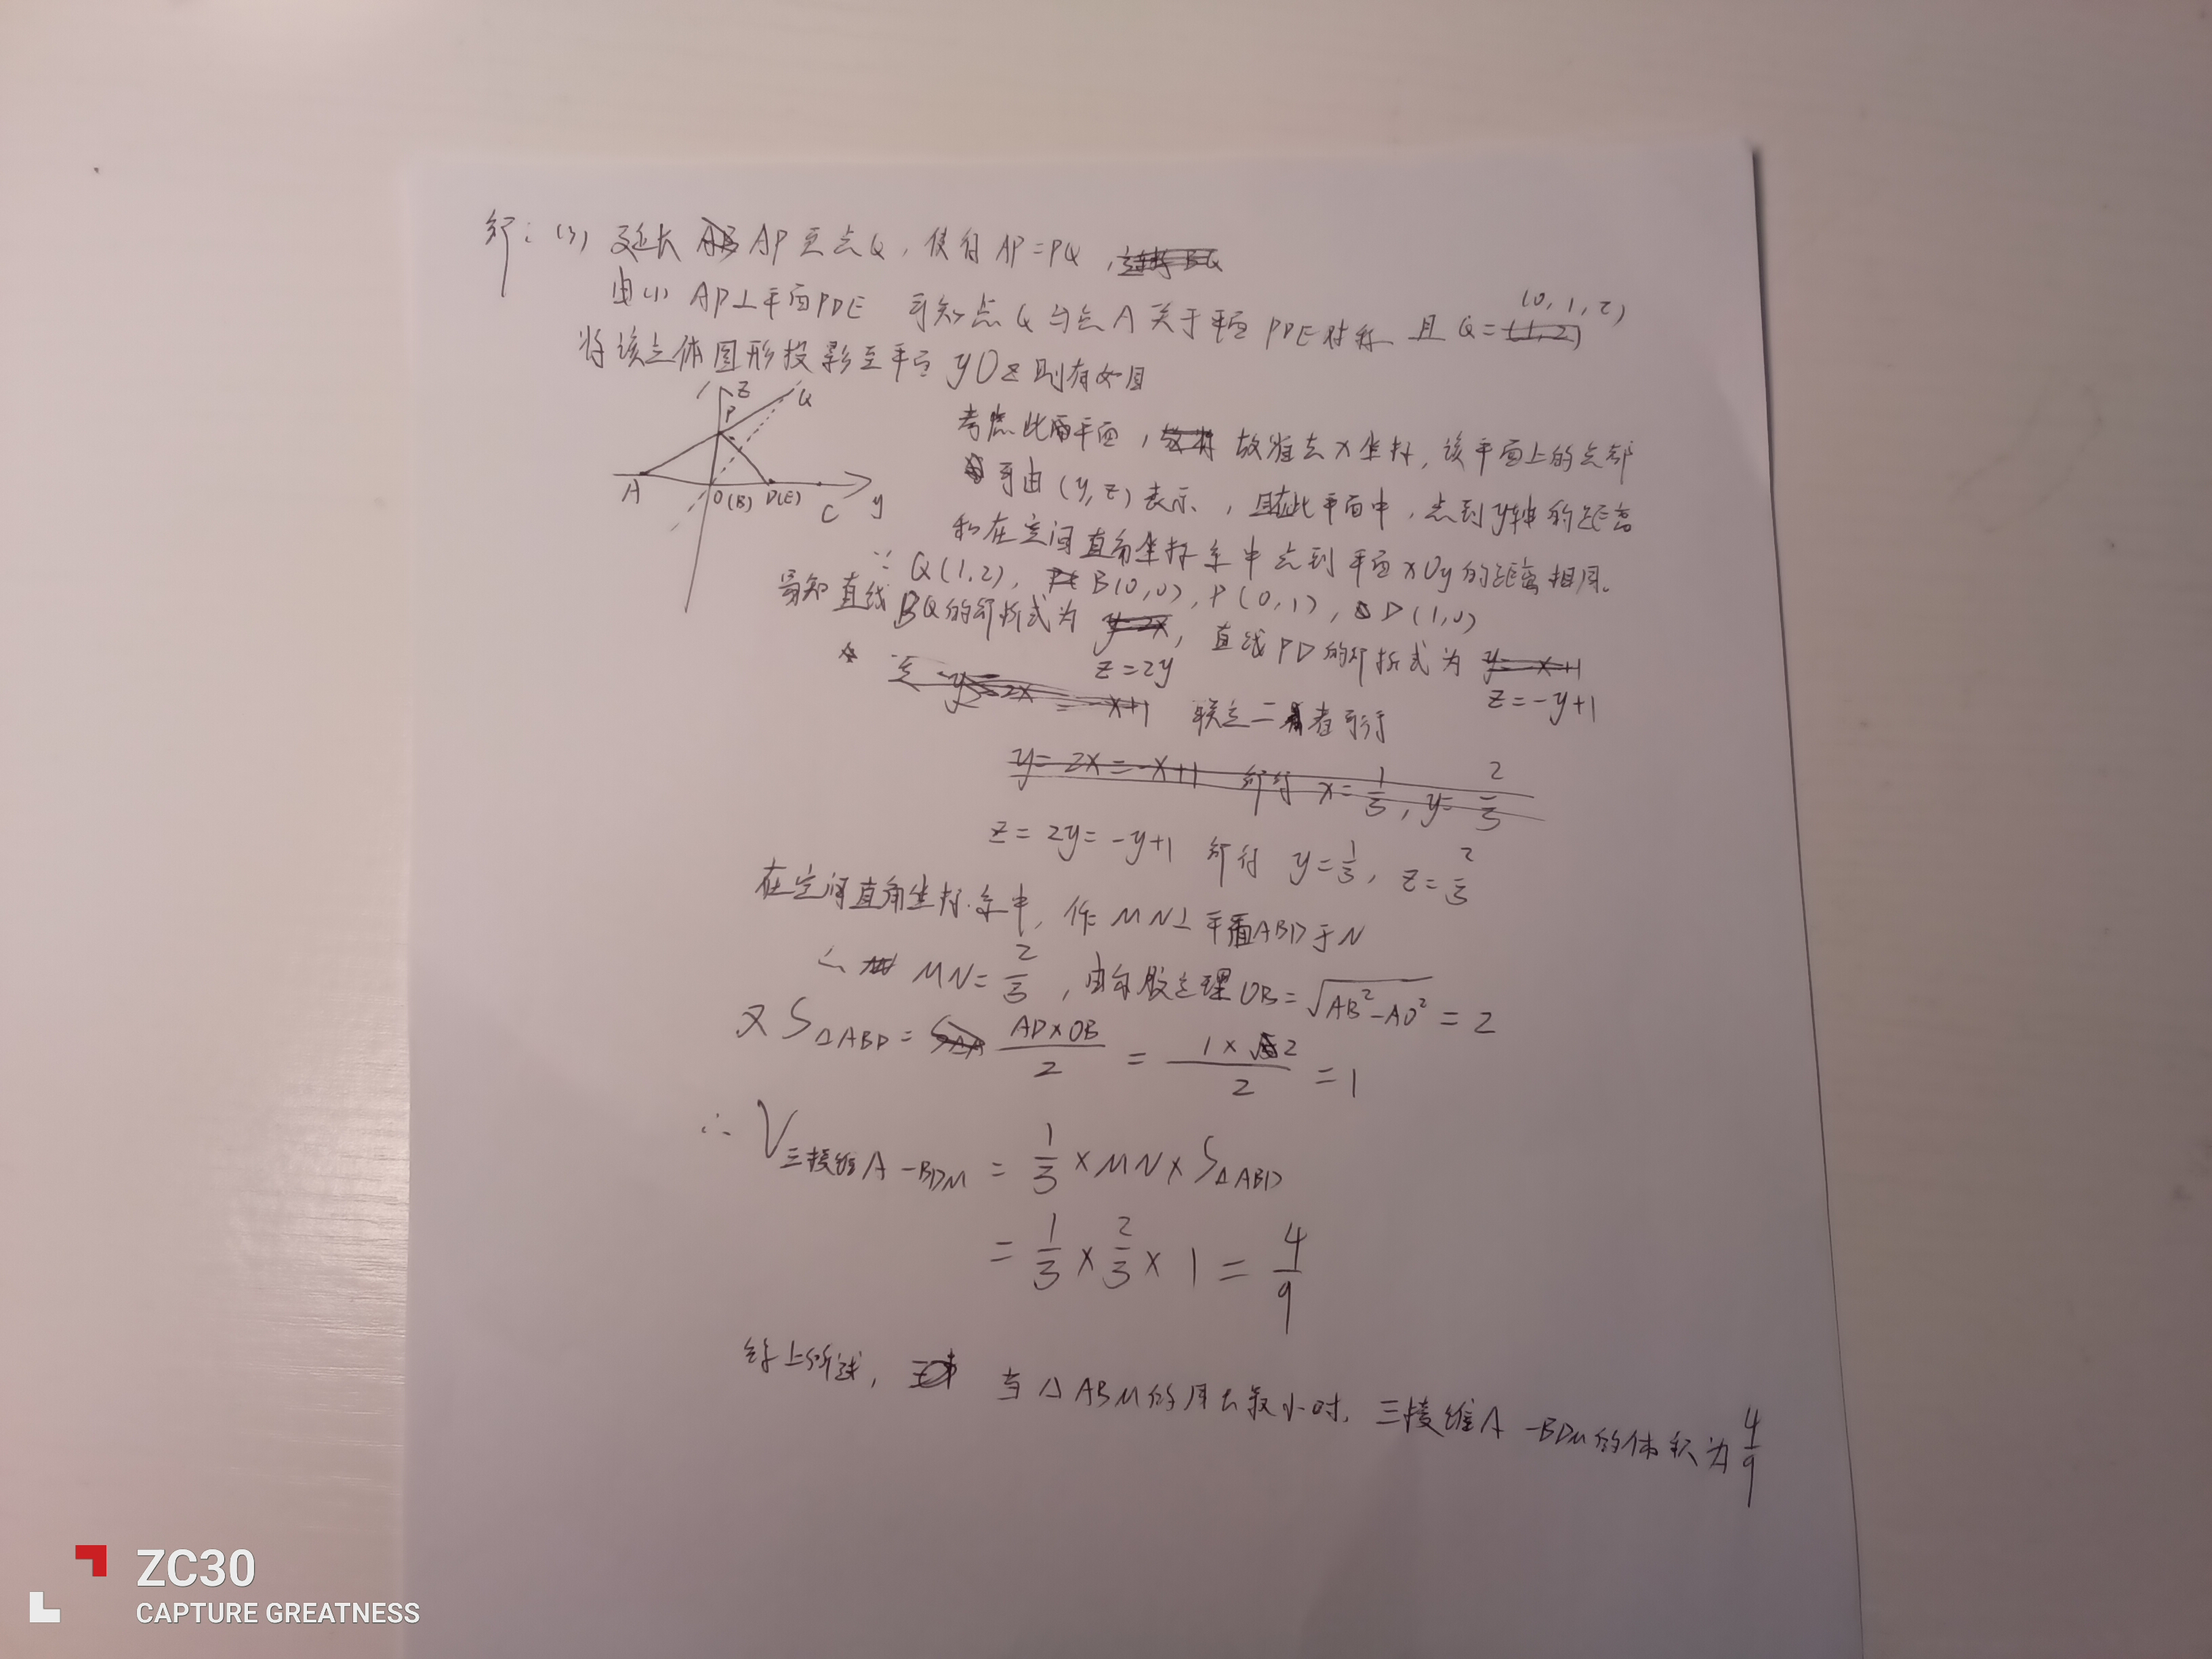 解：(3) 延长 AP至点Q，使得AP=PQ，
(0, 1, 2)
由(1) AP⊥平面PDE 可知点Q与点A关于平面PDE对称 且 Q=
将该立体图形投影至平面yOz则有如图
z
Q
P
A
O(B)
D(E)
C
y
考虑此平面，故难去x坐标，该平面上的点都
可由(y,z)表示，且在此平面中，点到y轴的距离
和在空间直角坐标系中点到平面xOy的距离相同。
∵ Q(1,2)，B(0,0)，P(0,1)，D(1,0)
易知直线BQ的解析式为 ，直线PD的解析式为
z=2y
z=-y+1
联立二者可得
y=2x=-x+1 解得 x=1/3, y=2/3
z=2y=-y+1 解得 y=1/3, z=2/3
在空间直角坐标系中，作MN⊥平面ABD于N
∴ MN=2/3，由勾股定理OB=√(AB²-AO²)=2
又 S△ABD= AD×OB/2 = 1×2/2 =1
∴ V三棱锥A-BDM = 1/3×MN×S△ABD
= 1/3×2/3×1=4/9
综上所述， 当△ABM的周长最小时，三棱锥A-BDM的体积为4/9
ZC30
CAPTURE GREATNESS